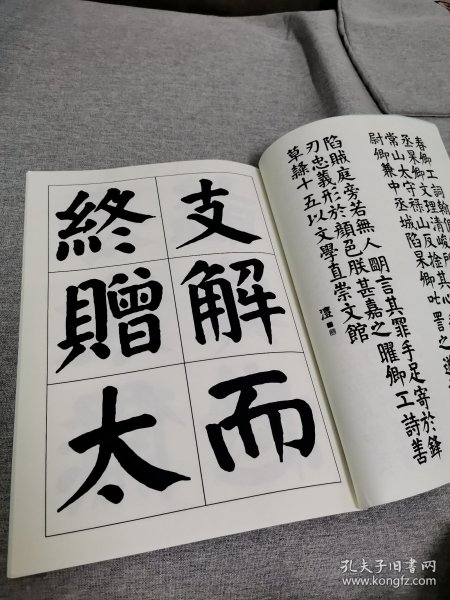 春卿工詞翰
丞杲卿文理清峻所其心
常山太守祿山反捨杲卿吐詈之
尉卿兼中丞城陷杲卿
明言其罪手足寄於鋒
陷賊庭旁若無人
刃忠義形於顏色朕甚嘉之曜卿工詩善
草隸十五以文學直崇文館
支解而
終贈太
孔夫子旧书网
www.kongfz.com